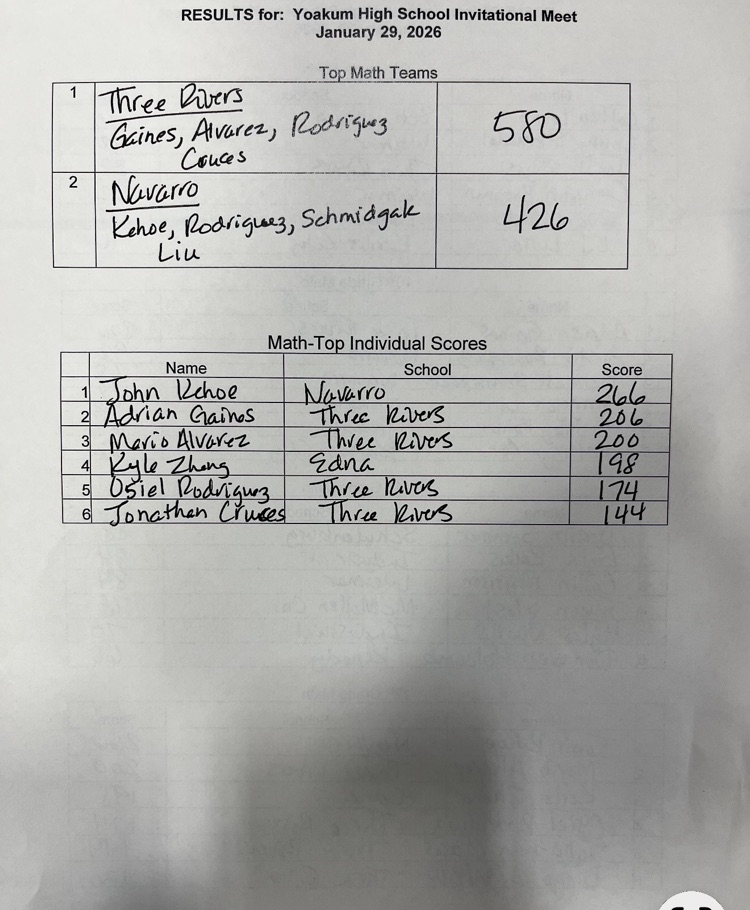 RESULTS for: Yoakum High School Invitational Meet
January 29, 2026
Top Math Teams
1 Three Rivers 580
Gaines, Alvarez, Rodriguez
Cruces
2 Navarro 426
Kehoe, Rodriguez, Schmidgak
Liu
Math-Top Individual Scores
Name School Score
1 John Kehoe Navarro 266
2 Adrian Gaines Three Rivers 206
3 Mario Alvarez Three Rivers 200
4 Kyle Zhang Edna 198
5 Osiel Rodriguez Three Rivers 174
6 Jonathan Cruces Three Rivers 144